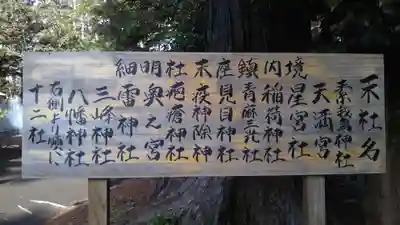 境内鎮座末社明細
末社名
素鵞神社
天満宮
星宮社
稲荷神社
青麻三光社
見目神社
疫神除神
疱瘡神社
奥之宮
雷神社
三峰神社
八幡神社
右側より順に
十二社